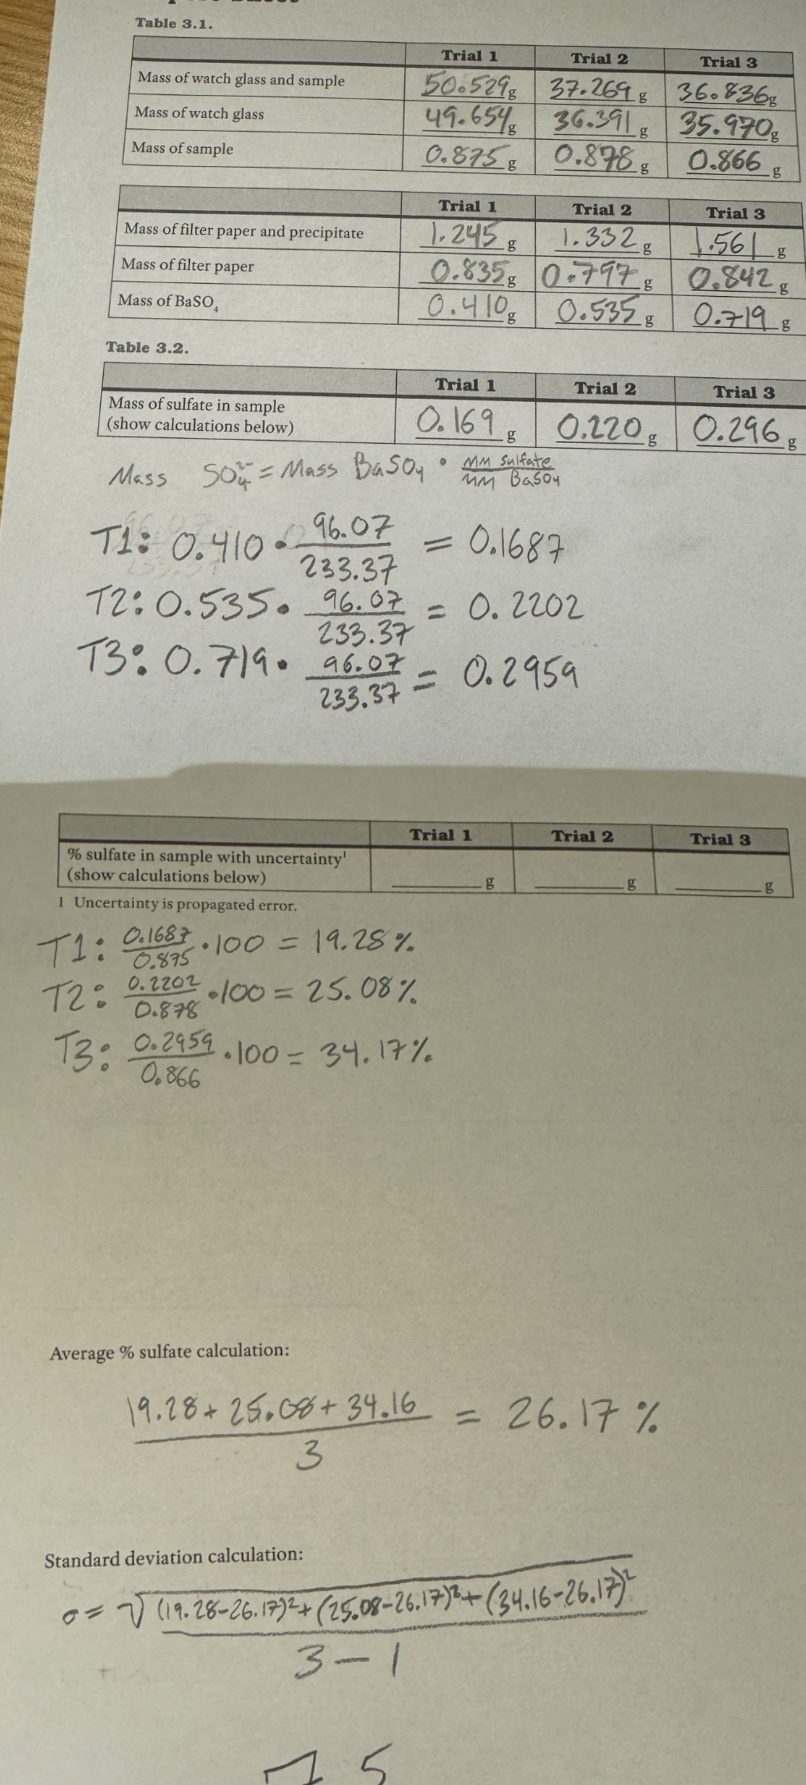 Table 3.1.
Trial 1 Trial 2 Trial 3
Mass of watch glass and sample 50.529 g 37.269 g 36.836 g
Mass of watch glass 49.654 g 36.391 g 35.970 g
Mass of sample 0.875 g 0.878 g 0.866 g
Trial 1 Trial 2 Trial 3
Mass of filter paper and precipitate 1.245 g 1.332 g 1.561 g
Mass of filter paper 0.835 g 0.797 g 0.842 g
Mass of BaSO₄ 0.410 g 0.535 g 0.719 g
Table 3.2.
Trial 1 Trial 2 Trial 3
Mass of sulfate in sample
(show calculations below) 0.169 g 0.220 g 0.296 g
Mass SO₄²⁻ = Mass BaSO₄ · MM sulfate / MM BaSO₄
T1: 0.410 · 96.07 / 233.37 = 0.1687
T2: 0.535 · 96.07 / 233.37 = 0.2202
T3: 0.719 · 96.07 / 233.37 = 0.2959
Trial 1 Trial 2 Trial 3
% sulfate in sample with uncertainty¹
(show calculations below) g g g
1 Uncertainty is propagated error.
T1: 0.1687 / 0.875 · 100 = 19.28 %
T2: 0.2202 / 0.878 · 100 = 25.08 %
T3: 0.2959 / 0.866 · 100 = 34.17 %
Average % sulfate calculation:
19.28 + 25.08 + 34.16 / 3 = 26.17 %
Standard deviation calculation:
σ = √ (19.28-26.17)² + (25.08-26.17)² + (34.16-26.17)² / 3 - 1